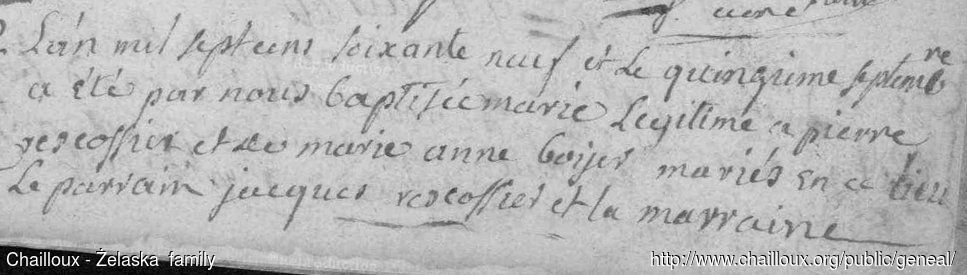 curé
L'an mil sept cens soixante neuf et Le quinzieme septembre
a été par nous baptisée marie Legitime a pierre
rescossier et de marie anne boyer mariés en ce lieu
Le parrain jacques rescossier et la marraine
Chailloux - Żelaska family
http://www.chailloux.org/public/geneal/